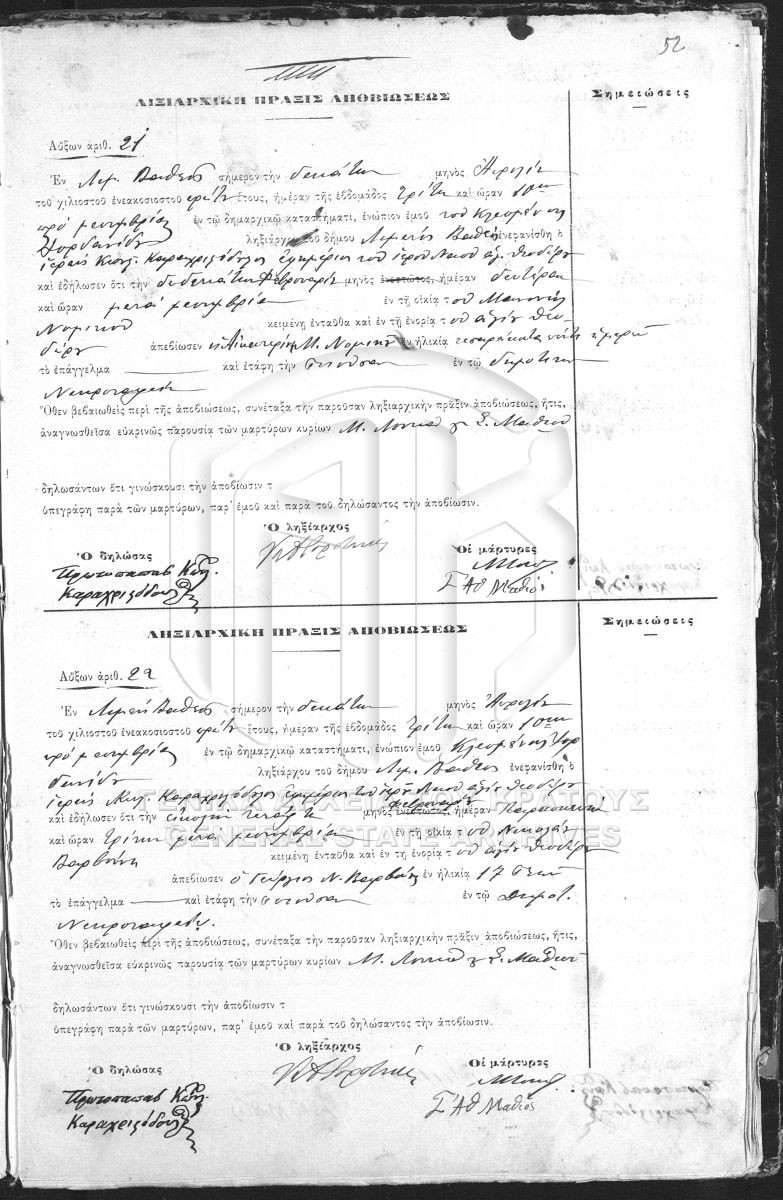 52
ΛΗΞΙΑΡΧΙΚΗ ΠΡΑΞΙΣ ΑΠΟΒΙΩΣΕΩΣ
Σημειώσεις
Αὔξων ἀριθ. 21
Ἐν Λιμ. Βαθέος σήμερον τὴν δεκάτην μηνὸς Ἀπριλίου
τοῦ χιλιοστοῦ ἐνεακοσιοστοῦ πρώτου ἔτους, ἡμέραν τῆς ἑβδομάδος Τρίτην καὶ ὥραν 10ην
πρὸ μεσημβρίας ἐν τῷ δημαρχικῷ καταστήματι, ἐνώπιον ἐμοῦ τοῦ Κλεομένους
ληξιάρχου τοῦ δήμου Λιμένος Βαθέος ἐνεφανίσθη ὁ
ἱερεὺς Κωνς. Καραχριςόδουλος ἐφημέριος τοῦ ἱεροῦ Ναοῦ ἁγ. Θεοδώρου
καὶ ἐδήλωσεν ὅτι τὴν δωδεκάτην Φεβρουαρίου μηνὸς ἐνεστῶτος, ἡμέραν Δευτέραν
καὶ ὥραν μετὰ μεσημβρίαν ἐν τῇ οἰκίᾳ τοῦ
κειμένῃ ἐνταῦθα καὶ ἐν τῇ ἐνορίᾳ τοῦ ἁγίου Θεο
δώρου ἀπεβίωσεν ἡ Αἰκατερίνη Μ. ἐν ἡλικίᾳ ἡμερῶν
τὸ ἐπάγγελμα καὶ ἐτάφη τὴν ἐν τῷ δημοτικῷ
Νεκροταφείῳ
Ὅθεν βεβαιωθεὶς περὶ τῆς ἀποβιώσεως, συνέταξα τὴν παροῦσαν ληξιαρχικὴν πρᾶξιν ἀποβιώσεως, ἥτις,
ἀναγνωσθεῖσα εὐκρινῶς παρουσίᾳ τῶν μαρτύρων κυρίων Μ. Λουκᾶ Σ. Μαθιοῦ
δηλωσάντων ὅτι γινώσκουσι τὴν ἀποβίωσιν τ
ὑπεγράφη παρὰ τῶν μαρτύρων, παρ' ἐμοῦ καὶ παρὰ τοῦ δηλώσαντος τὴν ἀποβίωσιν.
Ὁ ληξίαρχος
Ὁ δηλώσας
Οἱ μάρτυρες
Πρωτοπαπας Κωνς.
Καραχριςόδουλος
Σ Ἀθ Μαθιός
ΛΗΞΙΑΡΧΙΚΗ ΠΡΑΞΙΣ ΑΠΟΒΙΩΣΕΩΣ
Σημειώσεις
Αὔξων ἀριθ. 22
Ἐν Λιμένι Βαθέος σήμερον τὴν δεκάτην μηνὸς Ἀπριλίου
τοῦ χιλιοστοῦ ἐνεακοσιοστοῦ πρώτου ἔτους, ἡμέραν τῆς ἑβδομάδος Τρίτην καὶ ὥραν 10ην
πρὸ μεσημβρίας ἐν τῷ δημαρχικῷ καταστήματι, ἐνώπιον ἐμοῦ Κλεομένους
ληξιάρχου τοῦ δήμου Λιμ. Βαθέος ἐνεφανίσθη ὁ
ἱερεὺς Κωνς. Καραχριςόδουλος ἐφημέριος τοῦ ἱεροῦ Ναοῦ ἁγίου Θεοδώρου
καὶ ἐδήλωσεν ὅτι τὴν εἰκοστὴν τετάρτην Φεβρουαρίου μηνὸς ἐνεστῶτος, ἡμέραν Παρασκευὴν
καὶ ὥραν τρίτην μετὰ μεσημβρίαν ἐν τῇ οἰκίᾳ τοῦ Νικολάου
Βαρβούνη κειμένῃ ἐνταῦθα καὶ ἐν τῇ ἐνορίᾳ τοῦ ἁγίου Θεοδώρου
ἀπεβίωσεν ὁ Γεώργιος Ν. Βαρβούνης ἐν ἡλικίᾳ 17 ἐτῶν
τὸ ἐπάγγελμα καὶ ἐτάφη τὴν ἐν τῷ Δημοτ.
Νεκροταφείῳ.
Ὅθεν βεβαιωθεὶς περὶ τῆς ἀποβιώσεως, συνέταξα τὴν παροῦσαν ληξιαρχικὴν πρᾶξιν ἀποβιώσεως, ἥτις,
ἀναγνωσθεῖσα εὐκρινῶς παρουσίᾳ τῶν μαρτύρων κυρίων Μ. Λουκᾶ Σ. Μαθιοῦ
δηλωσάντων ὅτι γινώσκουσι τὴν ἀποβίωσιν τ
ὑπεγράφη παρὰ τῶν μαρτύρων, παρ' ἐμοῦ καὶ παρὰ τοῦ δηλώσαντος τὴν ἀποβίωσιν.
Ὁ ληξίαρχος
Ὁ δηλώσας
Οἱ μάρτυρες
Πρωτοπαπας Κωνς.
Καραχριςόδουλος
Σ Ἀθ Μαθιός
ΓΕΝΙΚΑ ΑΡΧΕΙΑ ΤΟΥ ΚΡΑΤΟΥΣ
GENERAL STATE ARCHIVES